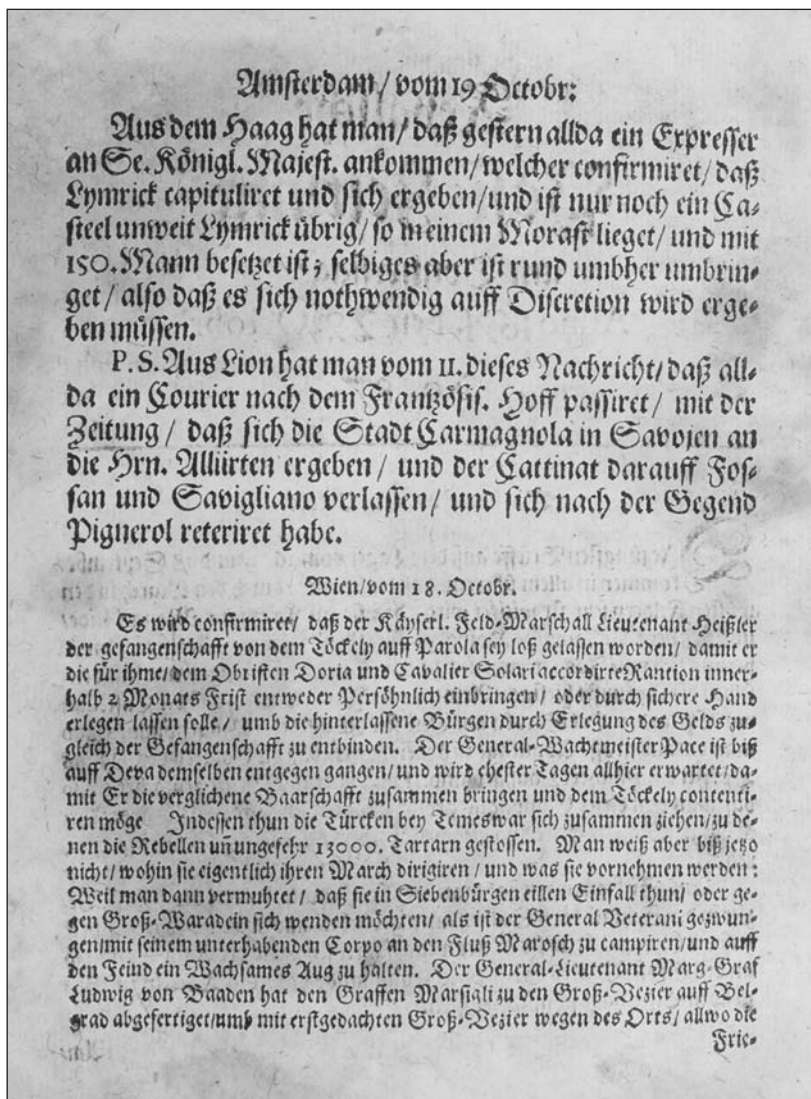 Amsterdam/ vom 19 Octobr:
Aus dem Haag hat man/ daß gestern allda ein Expresser
an Se. Königl. Majest. ankommen/ welcher confirmiret/ daß
Lymrick capituliret und sich ergeben/ und ist nur noch ein Ca-
steel unweit Lymrick übrig/ so in einem Morast lieget/ und mit
150. Mann besetzet ist; selbiges aber ist rund umbher umbrin-
get/ also daß es sich nothwendig auff Discretion wird erge-
ben müssen.
P. S. Aus Lion hat man vom 11. dieses Nachricht/ daß all-
da ein Courier nach dem Frantzösis. Hoff passiret/ mit der
Zeitung/ daß sich die Stadt Carmagnola in Savojen an
die Hrn. Alliirten ergeben/ und der Cattinat darauff Fos-
san und Savigliano verlassen/ und sich nach der Gegend
Pignerol reteriret habe.
Wien/ vom 18. Octobr.
Es wird confirmiret/ daß der Käyserl. Feld-Marschall Lieutenant Heißler
der gefangenschafft von dem Töckely auff Parola sey loß gelassen worden/ damit er
die für ihme/ dem Obristen Doria und Cavalier Solari accordirte Rantion inner-
halb 2 Monats Frist entweder Persöhnlich einbringen/ oder durch sichere Hand
erlegen lassen solle/ umb die hinterlassene Bürgen durch Erlegung des Gelds zu-
gleich der Gefangenschafft zu entbinden. Der General-Wachtmeister Pace ist biß
auff Deva demselben entgegen gangen/ und wird ehester Tagen allhier erwartet/ da-
mit Er die verglichene Baarschafft zusammen bringen und dem Töckely contenti-
ren möge Indessen thun die Türcken bey Temeswar sich zusammen ziehen/ zu de-
nen die Rebellen uñ ungefehr 13000. Tartarn gestossen. Man weiß aber biß jetzo
nicht/ wohin sie eigentlich ihren March dirigiren/ und was sie vornehmen werden:
Weil man dann vermuhtet/ daß sie in Siebenbürgen eillen Einfall thun/ oder ge-
gen Groß-Waradein sich wenden möchten/ als ist der General Veterani gezwun-
gen/ mit seinem unterhabenden Corpo an den Fluß Marosch zu campiren/ und auff
den Feind ein Wachsames Aug zu halten. Der General-Lieutenant Marg-Graf
Ludwig von Baaden hat den Graffen Marsigli zu den Groß-Vezier auff Bel-
grad abgefertiget/ umb mit erstgedachten Groß-Vezier wegen des Orts/ allwo die
Frie-